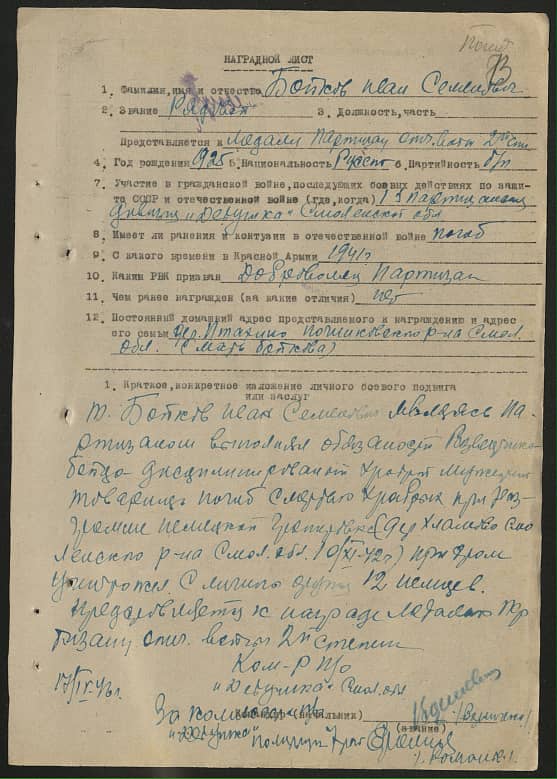 Погиб
73
НАГРАДНОЙ ЛИСТ
1. Фамилия, имя и отчество Бойков Иван Семенович
2. Звание Рядовой 3. Должность, часть
Представляется к Медали Партизан отеч. войны 2й степ
4. Год рождения 1925 5. Национальность Русск 6. Партийность б/п
7. Участие в гражданской войне, последующих боевых действиях по защи-
те СССР и отечественной войне (где, когда) Партизанск
"Дедушка" Смоленской обл
8. Имеет ли ранения и контузии в отечественной войне погиб
9. С какого времени в Красной Армии 1941г
10. Каким РВК призван Доброволец Партизан
11. Чем ранее награжден (за какие отличия) нет
12. Постоянный домашний адрес представляемого к награждению и адрес
его семьи дер. Птахино Починковского р-на Смол.
обл. (Мать Бойкова)
1. Краткое, конкретное изложение личного боевого подвига
или заслуг
т. Бойков Иван Семенович являясь Па-
ртизаном выполнял обязаности
бойца дисциплинированый храбрый
товарищ погиб смертью храбрых при раз-
громе немецкой (дер Смо
ленского р-на Смол. обл. 10/XI-42г) при этом
уничтожил с личного 12 немцев.
к награде Медалью Пар
тизану отеч. войны 2й степени
17/IV 43г.
Ком-р п/о
"Дедушка" Смол. обл
Командир (начальник)
(звание)
"Дедушка"